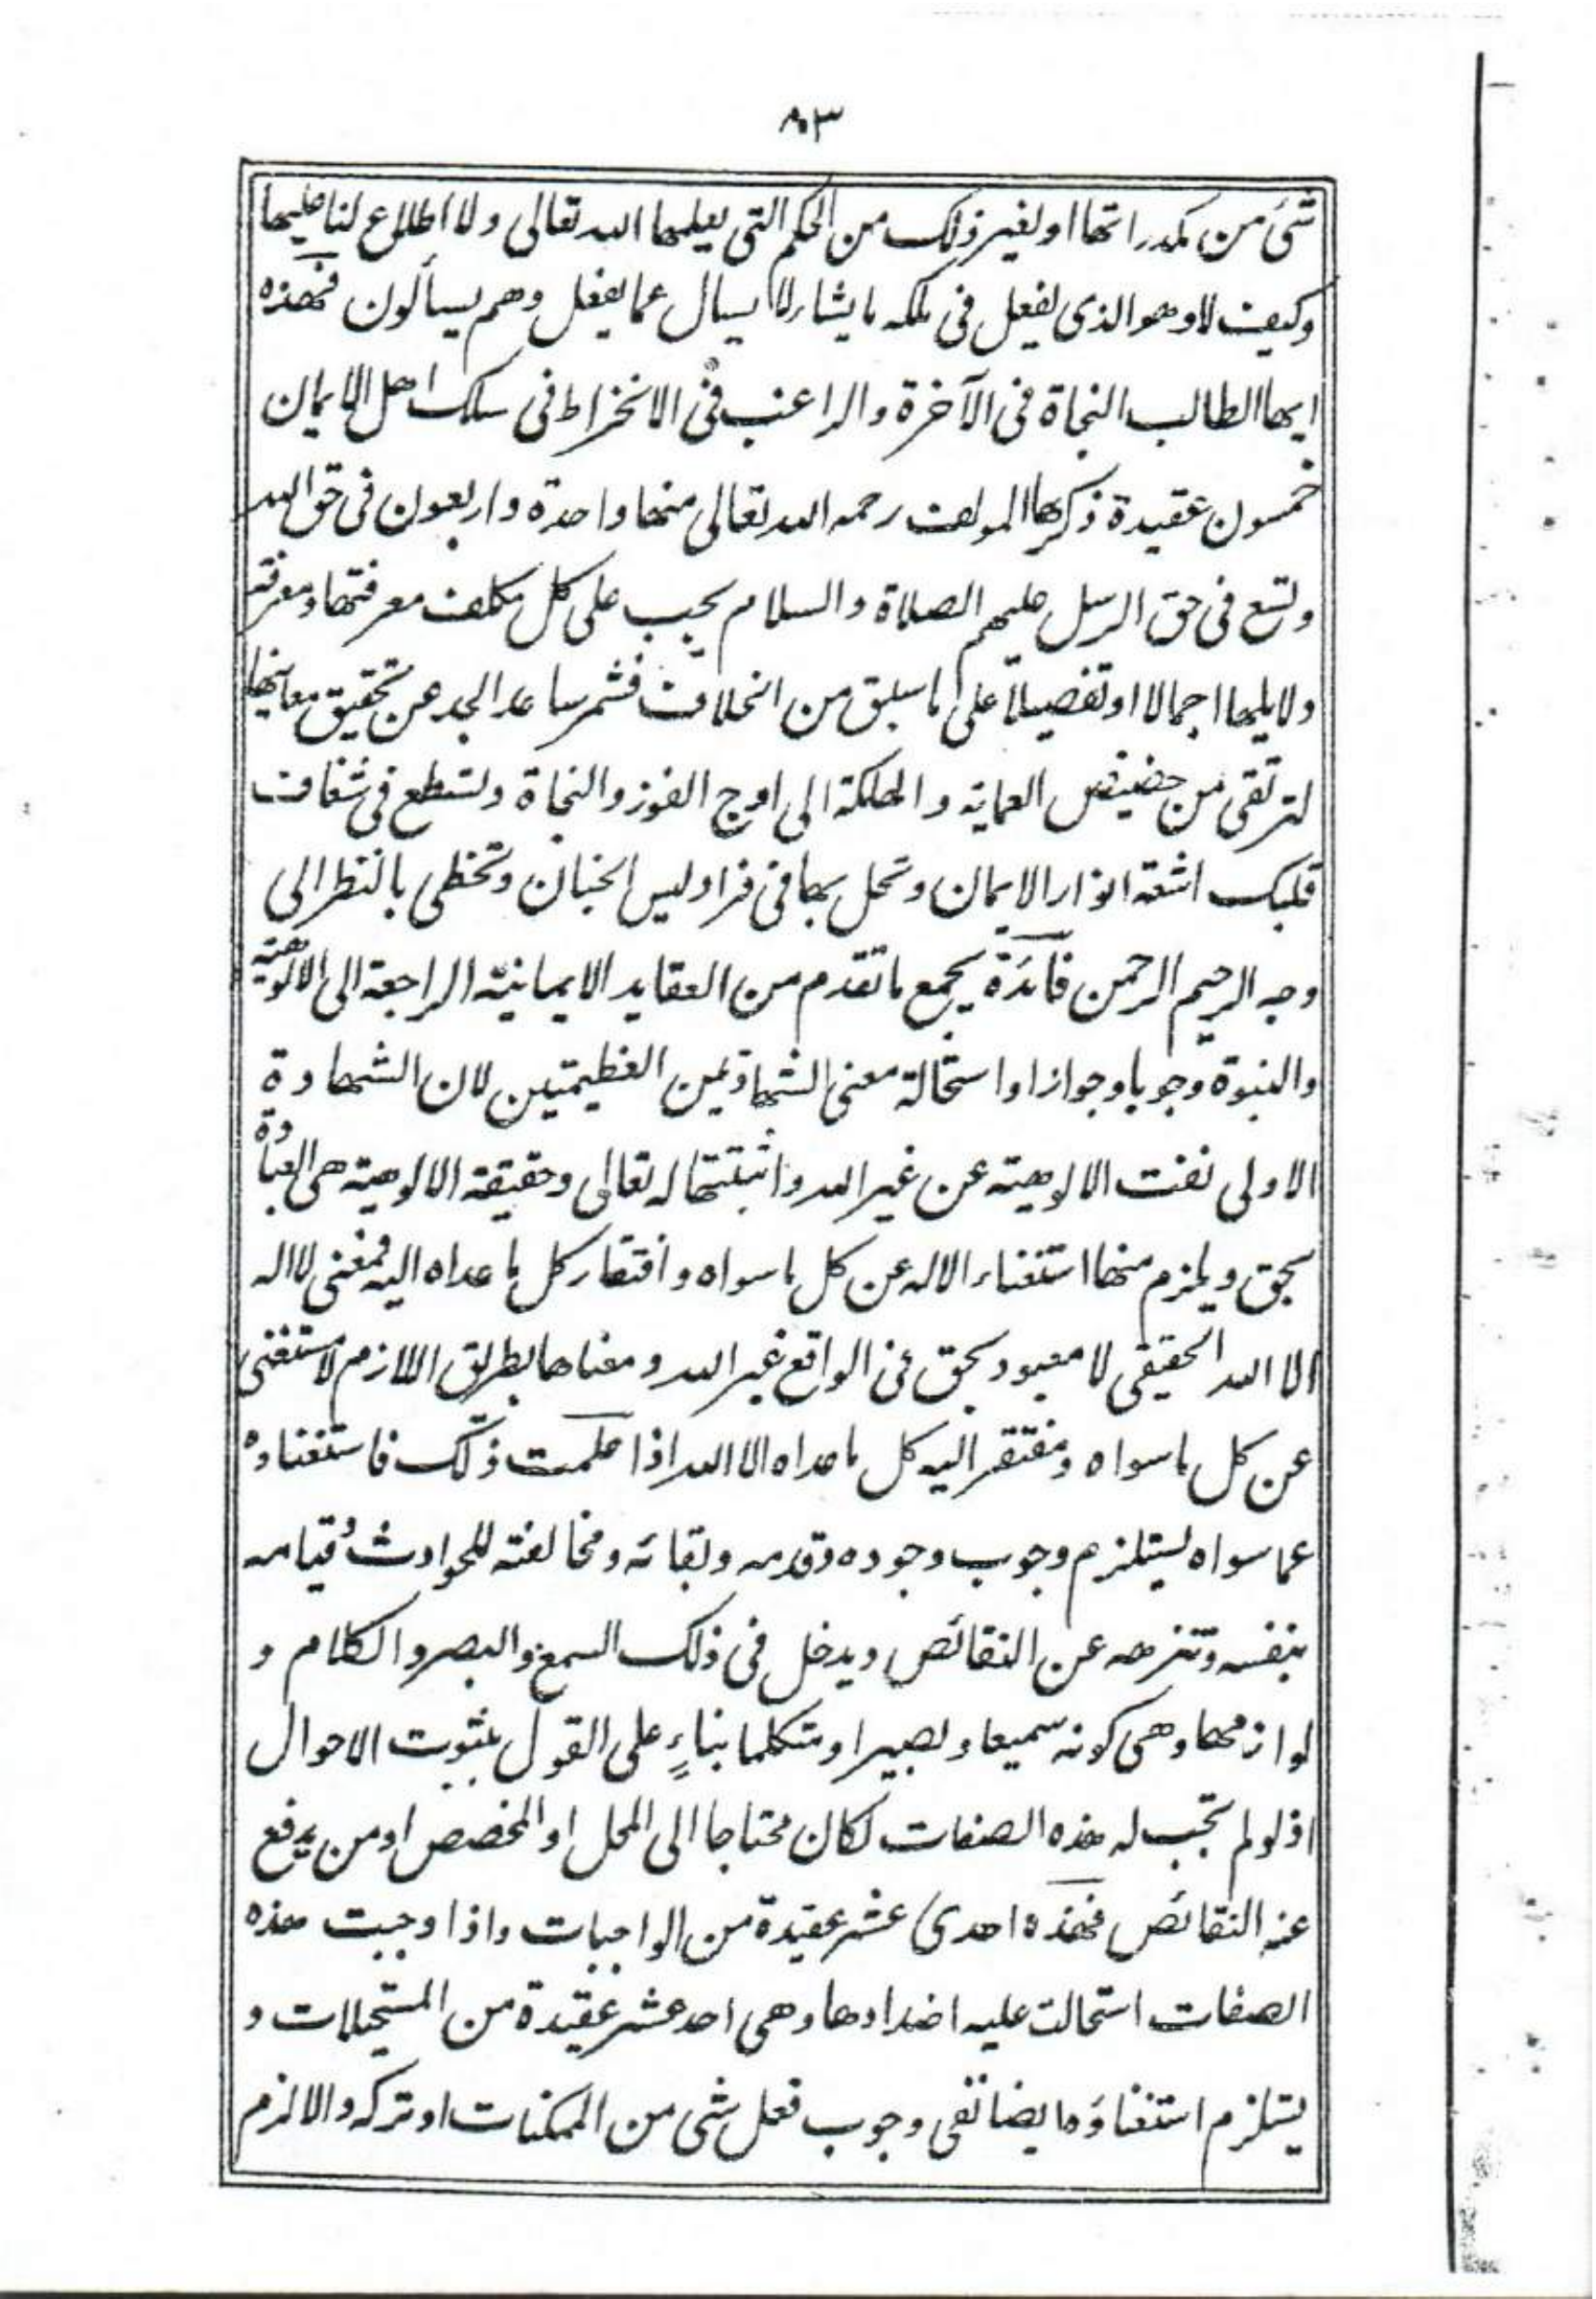 ٨٠٣
شئ من مكدراتها او لغير ذلك من الحكم التى يعلمها الله تعالى ولا اطلاع لنا عليها
وكيف لا وهو الذى يفعل فى ملكه ما يشاء لا يسال عما يفعل وهم يسألون فهذه
ايها الطالب النجاة فى الآخرة والراغب فى الانخراط فى سلك اهل الايمان
خمسون عقيدة ذكرها المولف رحمه الله تعالى منها واحدة واربعون فى حق الله
وتسع فى حق الرسل عليهم الصلاة والسلام يجب على كل مكلف معرفتها ومعرفة
ولايلها اجمالا او تفصيلا على ما سبق من الخلاف فشمر ساعد الجد عن تحقيق معانيها
لترتقى من حضيض العماية والهلكة الى اوج الفوز والنجاة ولتسطع فى شغاف
قلبك اشعة انوار الايمان وتحل بها فى فراديس الجنان وتحظى بالنظر الى
وجه الرحيم الرحمن فائدة يجمع ما تقدم من العقايد الايمانية الراجعة الى الالوهية
والنبوة وجوبا وجوازا واستحالة معنى الشهادتين العظيمتين لان الشهادة
الاولى نفت الالوهية عن غير الله واثبتتها له تعالى وحقيقة الالوهية هى العبادة
بحق ويلزم منها استغناء الاله عن كل ما سواه وافتقار كل ما عداه اليه فمعنى لا اله
الا الله الحقيقى لا معبود بحق فى الواقع غير الله ومعناها بطريق اللازم لا مستغنى
عن كل ما سواه ومفتقر اليه كل ما عداه الا الله اذا علمت ذلك فاستغناوه
عما سواه يستلزم وجوب وجوده وقدمه وبقائه ومخالفته للحوادث وقيامه
بنفسه وتنزهه عن النقائص ويدخل فى ذلك السمع والبصر والكلام و
لوازمها وهى كونه سميعا وبصيرا ومتكلما بناءٍ على القول بثبوت الاحوال
اذ لو لم تجب له هذه الصفات لكان محتاجا الى المحل او المخصص او من يدفع
عنه النقائص فهذه احدى عشر عقيدة من الواجبات واذا وجبت هذه
الصفات استحالت عليه اضدادها وهى احد عشر عقيدة من المستحيلات و
يستلزم استغناؤه ايضا نفى وجوب فعل شى من الممكنات او تركه والا لزم